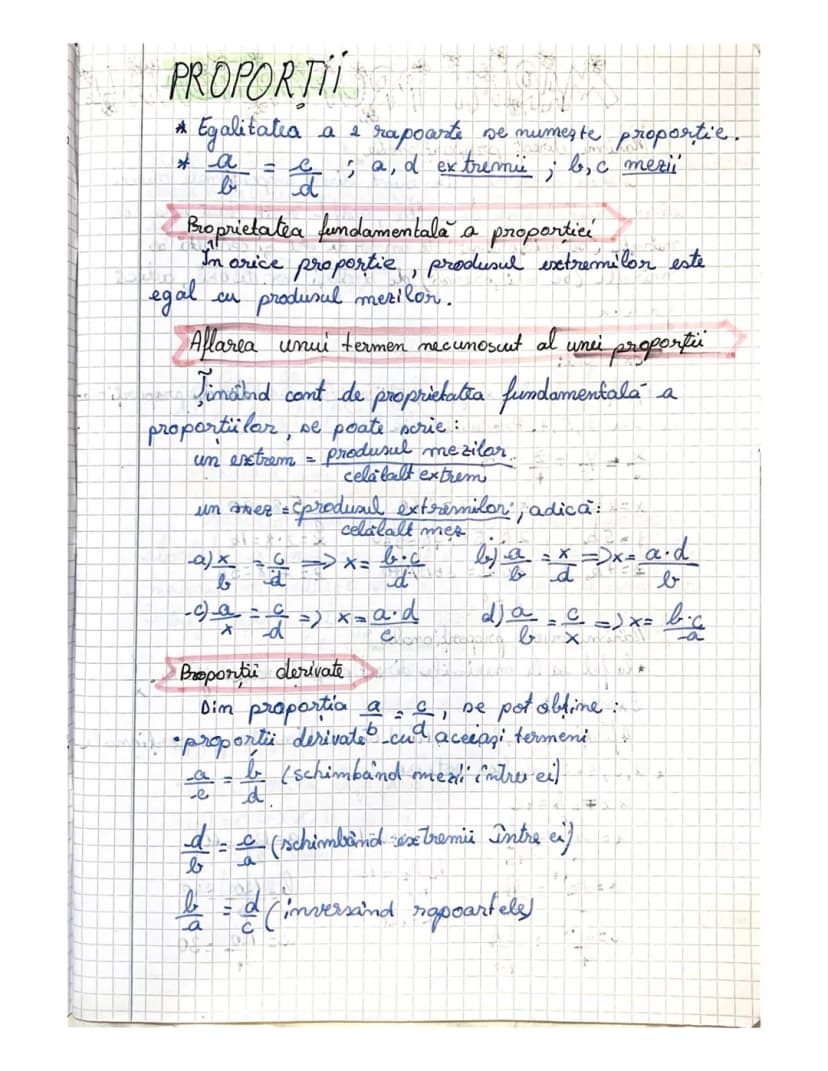 PROPORȚII
* Egalitatea a 2 rapoarte se numește proporție.
* a/b = c/d ; a, d extremii ; b, c mezii
Proprietatea fundamentală a proporției
În orice proporție, produsul extremilor este
egal cu produsul mezilor.
Aflarea unui termen necunoscut al unei proporții
Ținând cont de proprietatea fundamentală a
proporțiilor, se poate scrie:
un extrem = produsul mezilor / celălalt extrem
un mez = produsul extremilor / celălalt mez, adică:
a) x/b = c/d => x = b·c/d b) a/b = x/d => x = a·d/b
c) a/x = c/d => x = a·d/c d) a/b = c/x => x = b·c/a
Proporții derivate
Din proporția a/b = c/d, se pot obține:
• proporții derivate cu aceeași termeni
a/c = b/d (schimbând mezii între ei)
d/b = c/a (schimbând extremii între ei)
b/a = d/c (inversând rapoartele)